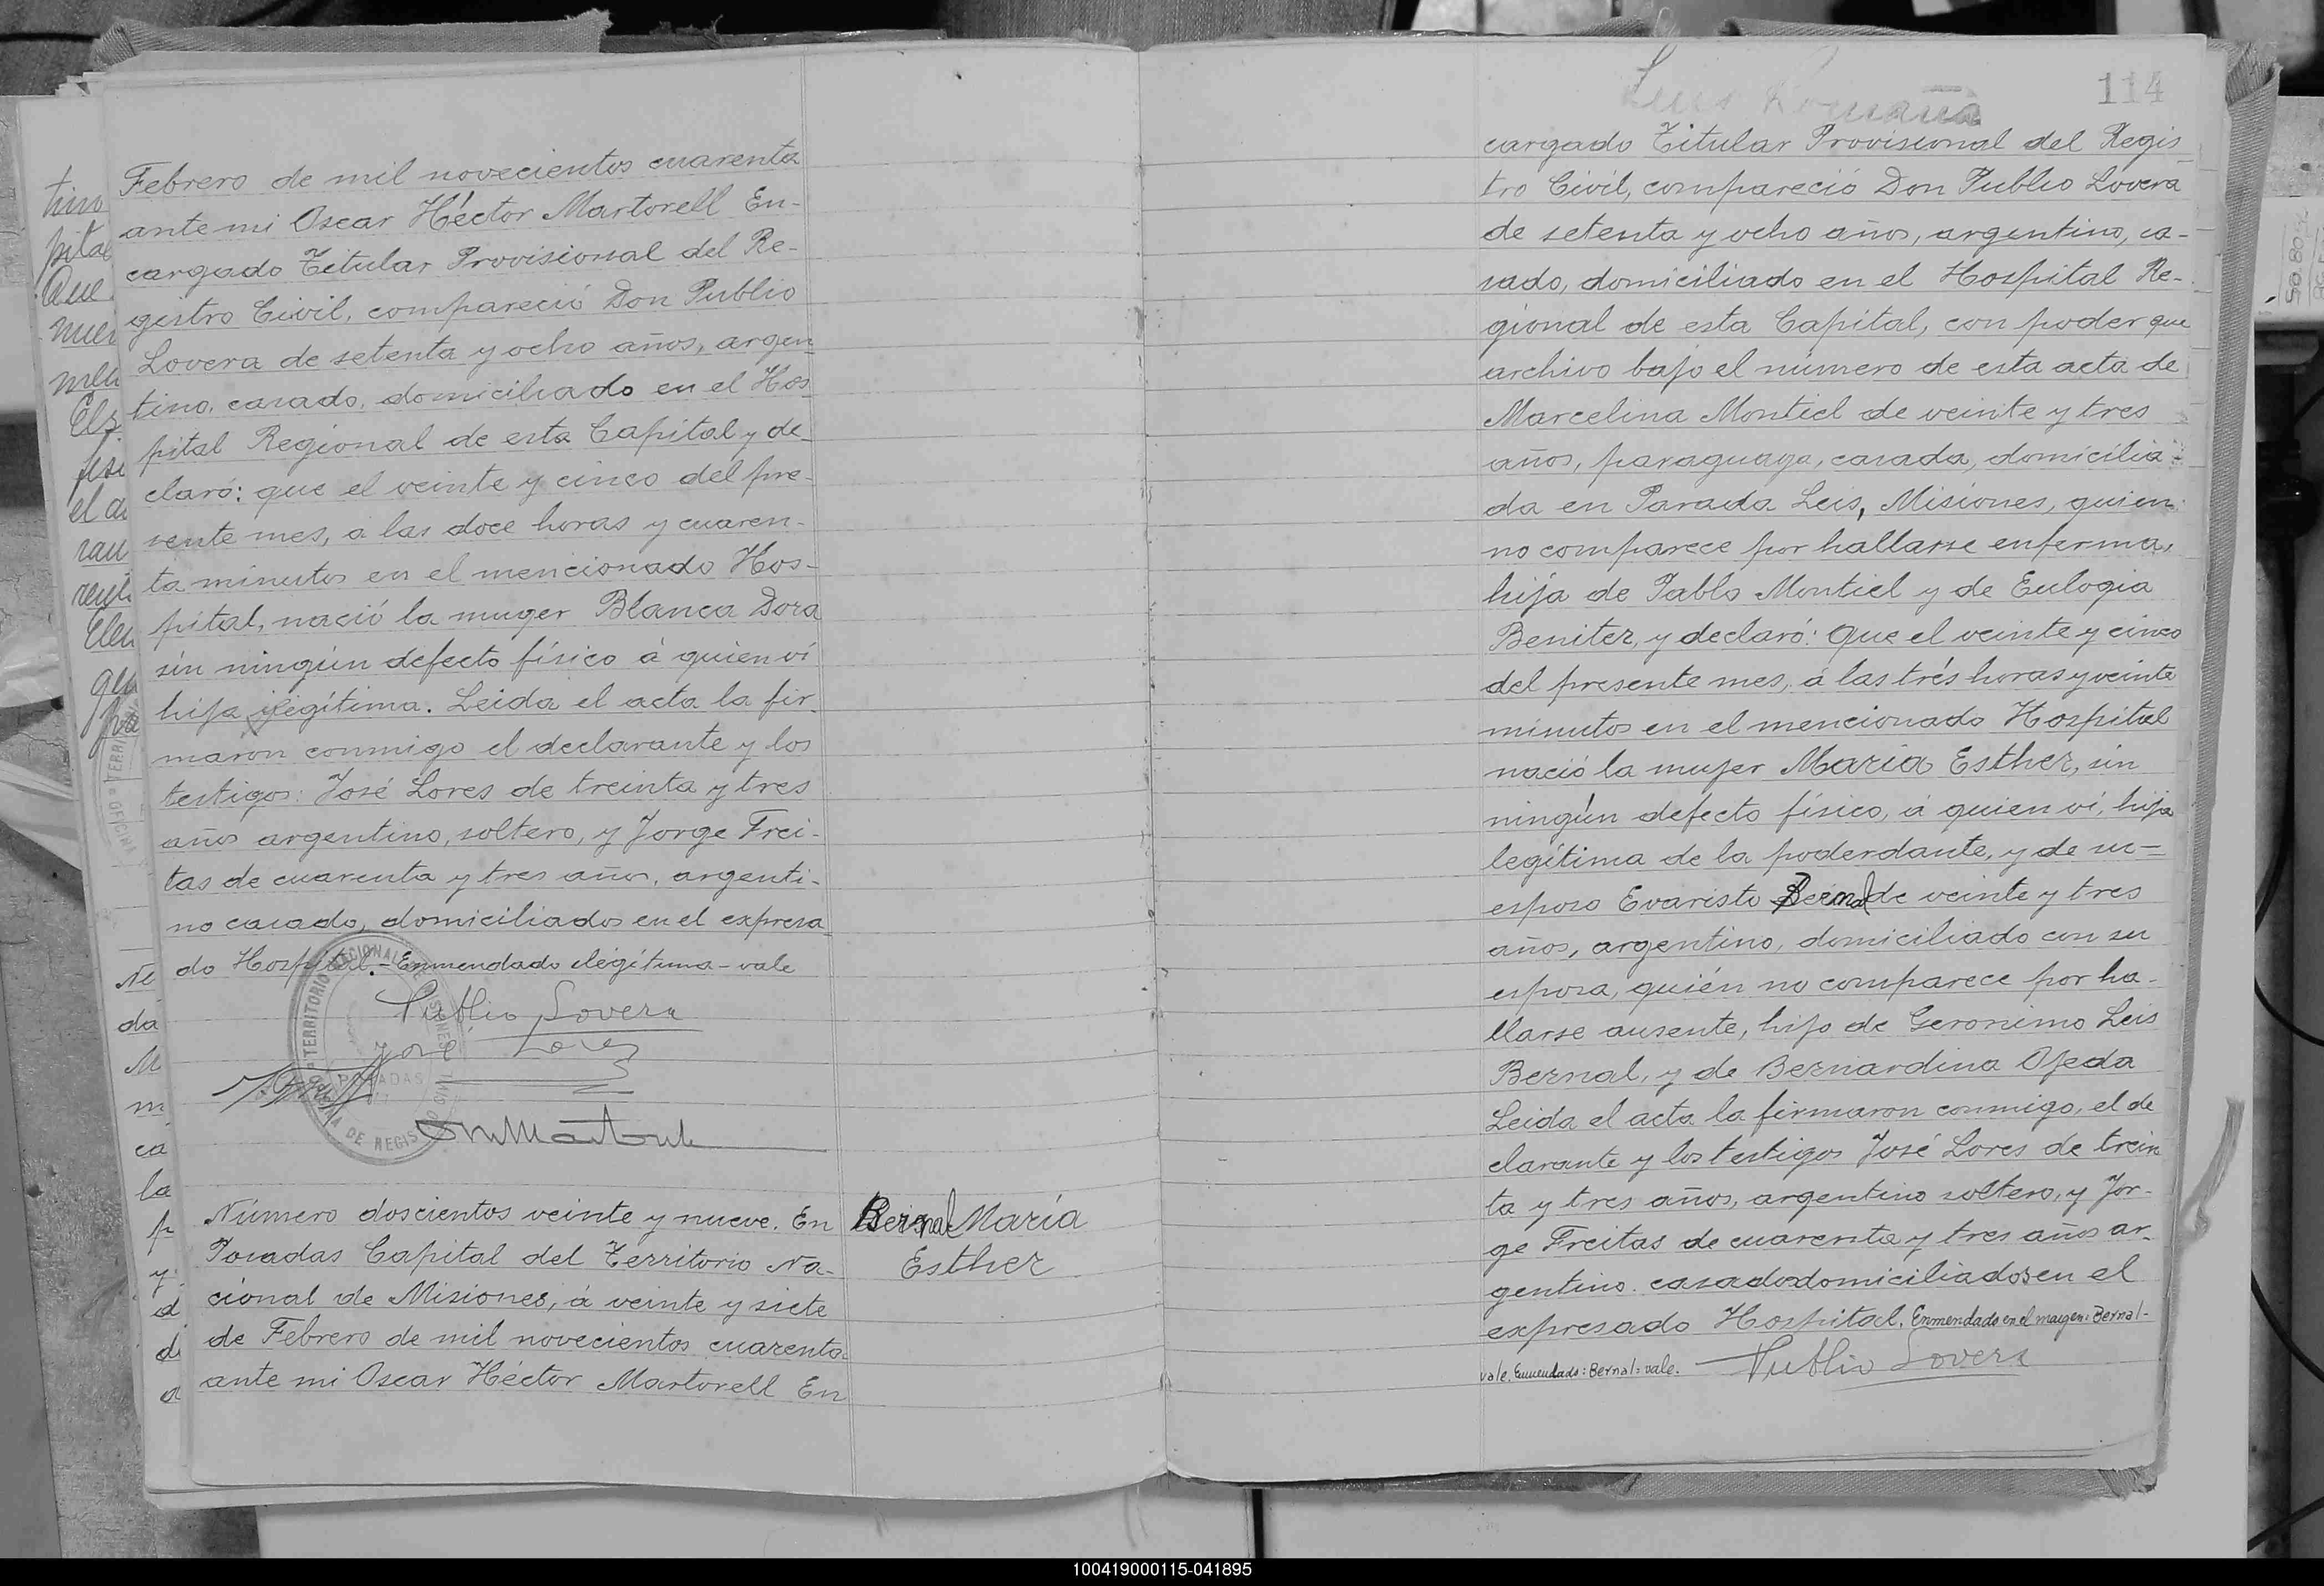 Febrero de mil novecientos cuarenta
ante mi Oscar Héctor Martorell En-
cargado Titular Provisional del Re-
gistro Civil, compareció Don Publio
Lovera de setenta y ocho años, argen
tino, casado, domiciliado en el Hos
pital Regional de esta Capital y de-
claró: que el veinte y cinco del pre-
sente mes, á las doce horas y cuaren-
ta minutos en el mencionado Hos-
pital, nació la muger Blanca Dora
sin ningún defecto físico á quien ví
hija ilegítima. Leida el acta la fir-
maron conmigo el declarante y los
testigos: José Lores de treinta y tres
años argentino, soltero, y Jorge Frei-
tas de cuarenta y tres años, argenti-
no casado, domiciliados en el expresa
do Hospital.- Enmendado ilegítima - vale
Publio Lovera
José Lores
TERRITORIO NACIONAL DE MISIONES
POSADAS
OFICINA DE REGISTRO CIVIL
Número doscientos veinte y nueve. En
Posadas Capital del Territorio Na-
cional de Misiones, á veinte y siete
de Febrero de mil novecientos cuarenta
ante mi Oscar Héctor Martorell En
Bernal María
Esther
tino
pital
Que
El
el
da
M
ca
la
p
y
d
114
cargado Titular Provisional del Regis-
tro Civil, compareció Don Publio Lovera
de setenta y ocho años, argentino, ca-
sado, domiciliado en el Hospital Re-
gional de esta Capital, con poder que
archivo bajo el número de esta acta de
Marcelina Montiel de veinte y tres
años, paraguaya, casada, domicilia-
da en Parada Leis, Misiones, quien
no comparece por hallarse enferma,
hija de Pablo Montiel y de Eulogia
Benitez, y declaró: Que el veinte y cinco
del presente mes, á las trés horas y veinte
minutos en el mencionado Hospital
nació la mujer Maria Esther, sin
ningún defecto físico, á quien ví, hija
legítima de la poderdante, y de su=
esposo Evaristo Bernal de veinte y tres
años, argentino, domiciliado con su
esposa, quién no comparece por ha-
llarse ausente, hijo de Geronimo Leis
Bernal, y de Bernardina Ojeda
Leida el acta la firmaron conmigo, el de
clarante y los testigos José Lores de trein
ta y tres años, argentino soltero, y Jor-
ge Freitas de cuarenta y tres años ar-
gentino. casado domiciliados en el
expresado Hospital. Enmendado en el margen: Bernal-
vale. Enmendado: Bernal = vale.
Publio Lovera
100419000115-041895